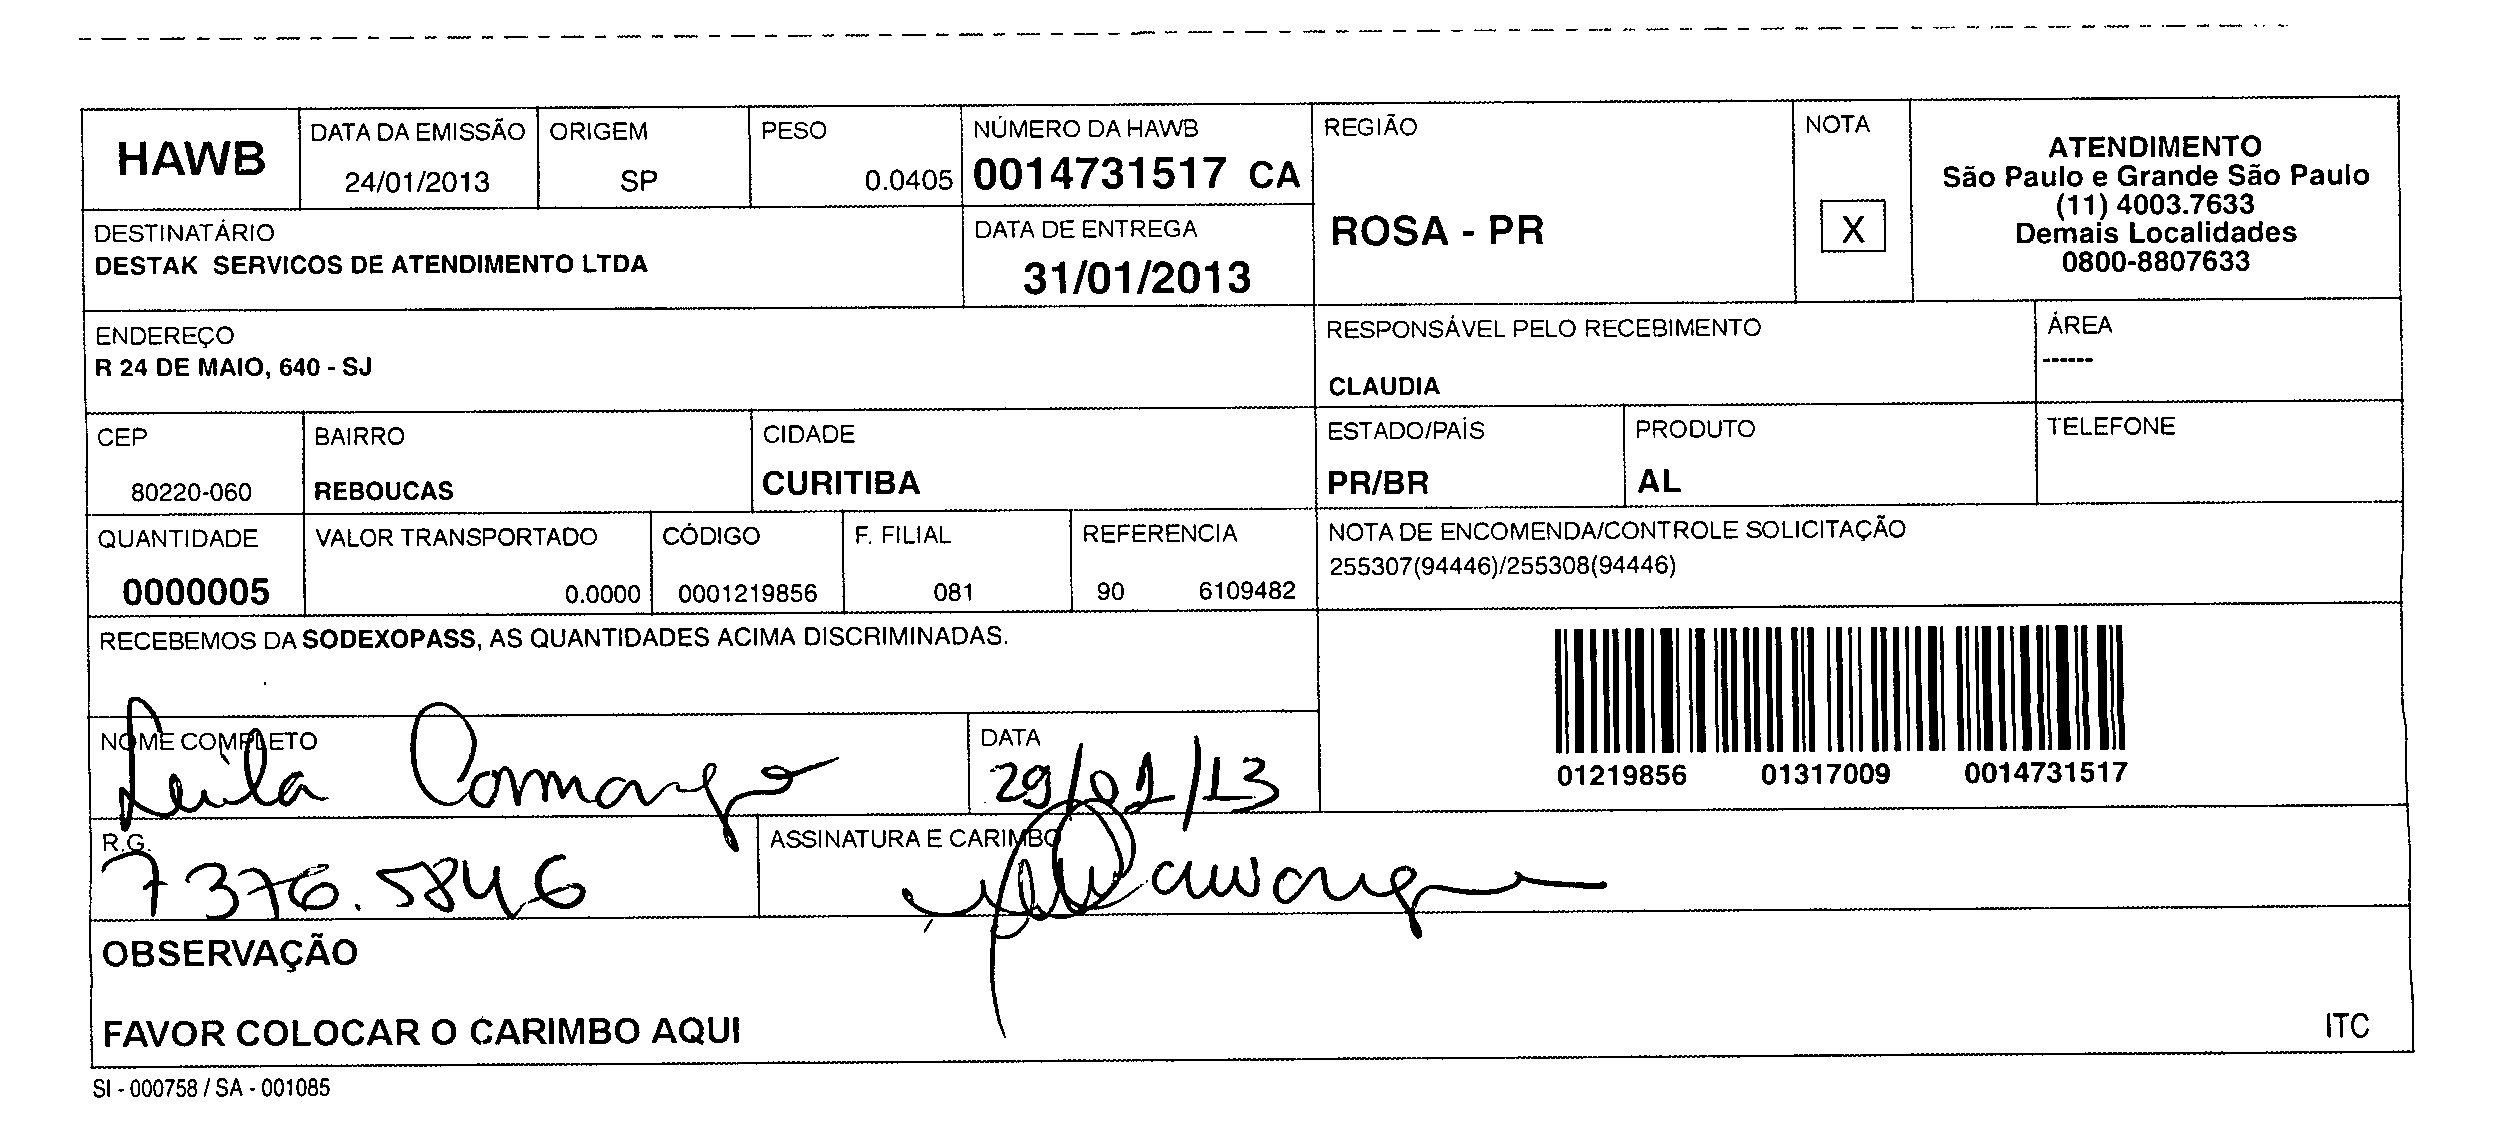 HAWB
DATA DA EMISSÃO
24/01/2013
ORIGEM
SP
PESO
0.0405
NÚMERO DA HAWB
0014731517 CA
REGIÃO
ROSA - PR
NOTA
X
ATENDIMENTO
São Paulo e Grande São Paulo
(11) 4003.7633
Demais Localidades
0800-8807633
DESTINATÁRIO
DESTAK SERVICOS DE ATENDIMENTO LTDA
DATA DE ENTREGA
31/01/2013
ENDEREÇO
R 24 DE MAIO, 640 - SJ
RESPONSÁVEL PELO RECEBIMENTO
CLAUDIA
ÁREA
------
CEP
80220-060
BAIRRO
REBOUCAS
CIDADE
CURITIBA
ESTADO/PAÍS
PR/BR
PRODUTO
AL
TELEFONE
QUANTIDADE
0000005
VALOR TRANSPORTADO
0.0000
CÓDIGO
0001219856
F. FILIAL
081
REFERENCIA
90 6109482
NOTA DE ENCOMENDA/CONTROLE SOLICITAÇÃO
255307(94446)/255308(94446)
RECEBEMOS DA SODEXOPASS, AS QUANTIDADES ACIMA DISCRIMINADAS.
01219856 01317009 0014731517
NOME COMPLETO
Leila Camargo
DATA
29/01/13
R.G.
7376.5846
ASSINATURA E CARIMBO
OBSERVAÇÃO
FAVOR COLOCAR O CARIMBO AQUI
ITC
SI - 000758 / SA - 001085